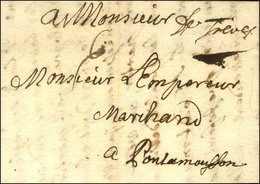 A Monsieur de Treves
Monsieur L'Empereur
Marchand
a Pontamousson